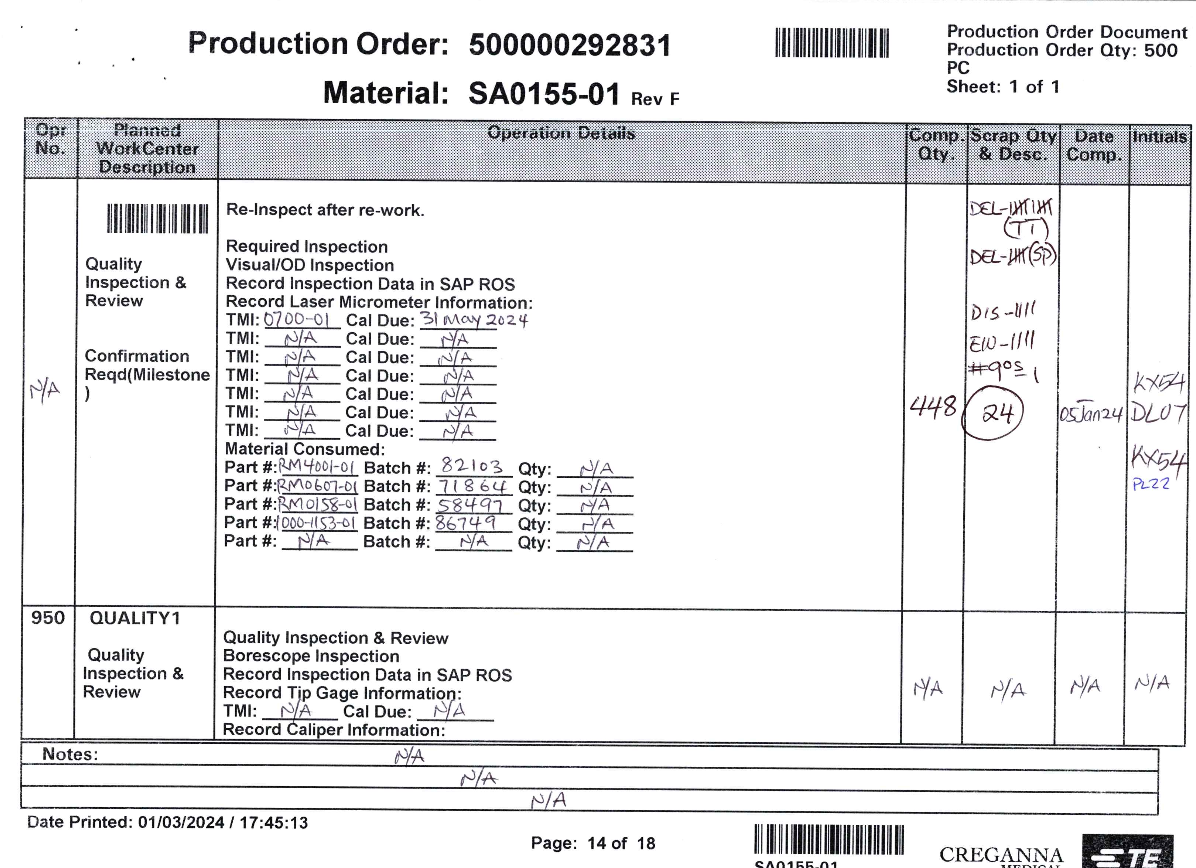 Production Order: 500000292831
Production Order Document
Production Order Qty: 500
PC
Sheet: 1 of 1
Material: SA0155-01 Rev F
Opr No.
Planned WorkCenter Description
Operation Details
Comp. Qty.
Scrap Qty & Desc.
Date Comp.
Initials
N/A
Quality
Inspection &
Review
Confirmation
Reqd(Milestone
)
Re-Inspect after re-work.
Required Inspection
Visual/OD Inspection
Record Inspection Data in SAP ROS
Record Laser Micrometer Information:
TMI: 0700-01 Cal Due: 31 May 2024
TMI: N/A Cal Due: N/A
TMI: N/A Cal Due: N/A
TMI: N/A Cal Due: N/A
TMI: N/A Cal Due: N/A
TMI: N/A Cal Due: N/A
TMI: N/A Cal Due: N/A
Material Consumed:
Part #: RM4001-01 Batch #: 82103 Qty: N/A
Part #: RM0607-01 Batch #: 71864 Qty: N/A
Part #: RM0158-01 Batch #: 58497 Qty: N/A
Part #: 1000-1153-01 Batch #: 86749 Qty: N/A
Part #: N/A Batch #: N/A Qty: N/A
448
DEL-
(TT)
DEL- (SP)
DIS-IIII
EW-IIII
24
05Jan24
KX54
DL07
KX54
PL22
950
QUALITY1
Quality
Inspection &
Review
Quality Inspection & Review
Borescope Inspection
Record Inspection Data in SAP ROS
Record Tip Gage Information:
TMI: N/A Cal Due: N/A
Record Caliper Information:
N/A
N/A
N/A
N/A
Notes: N/A
N/A
N/A
Date Printed: 01/03/2024 / 17:45:13
Page: 14 of 18
SA0155-01
CREGANNA
MEDICAL
TE